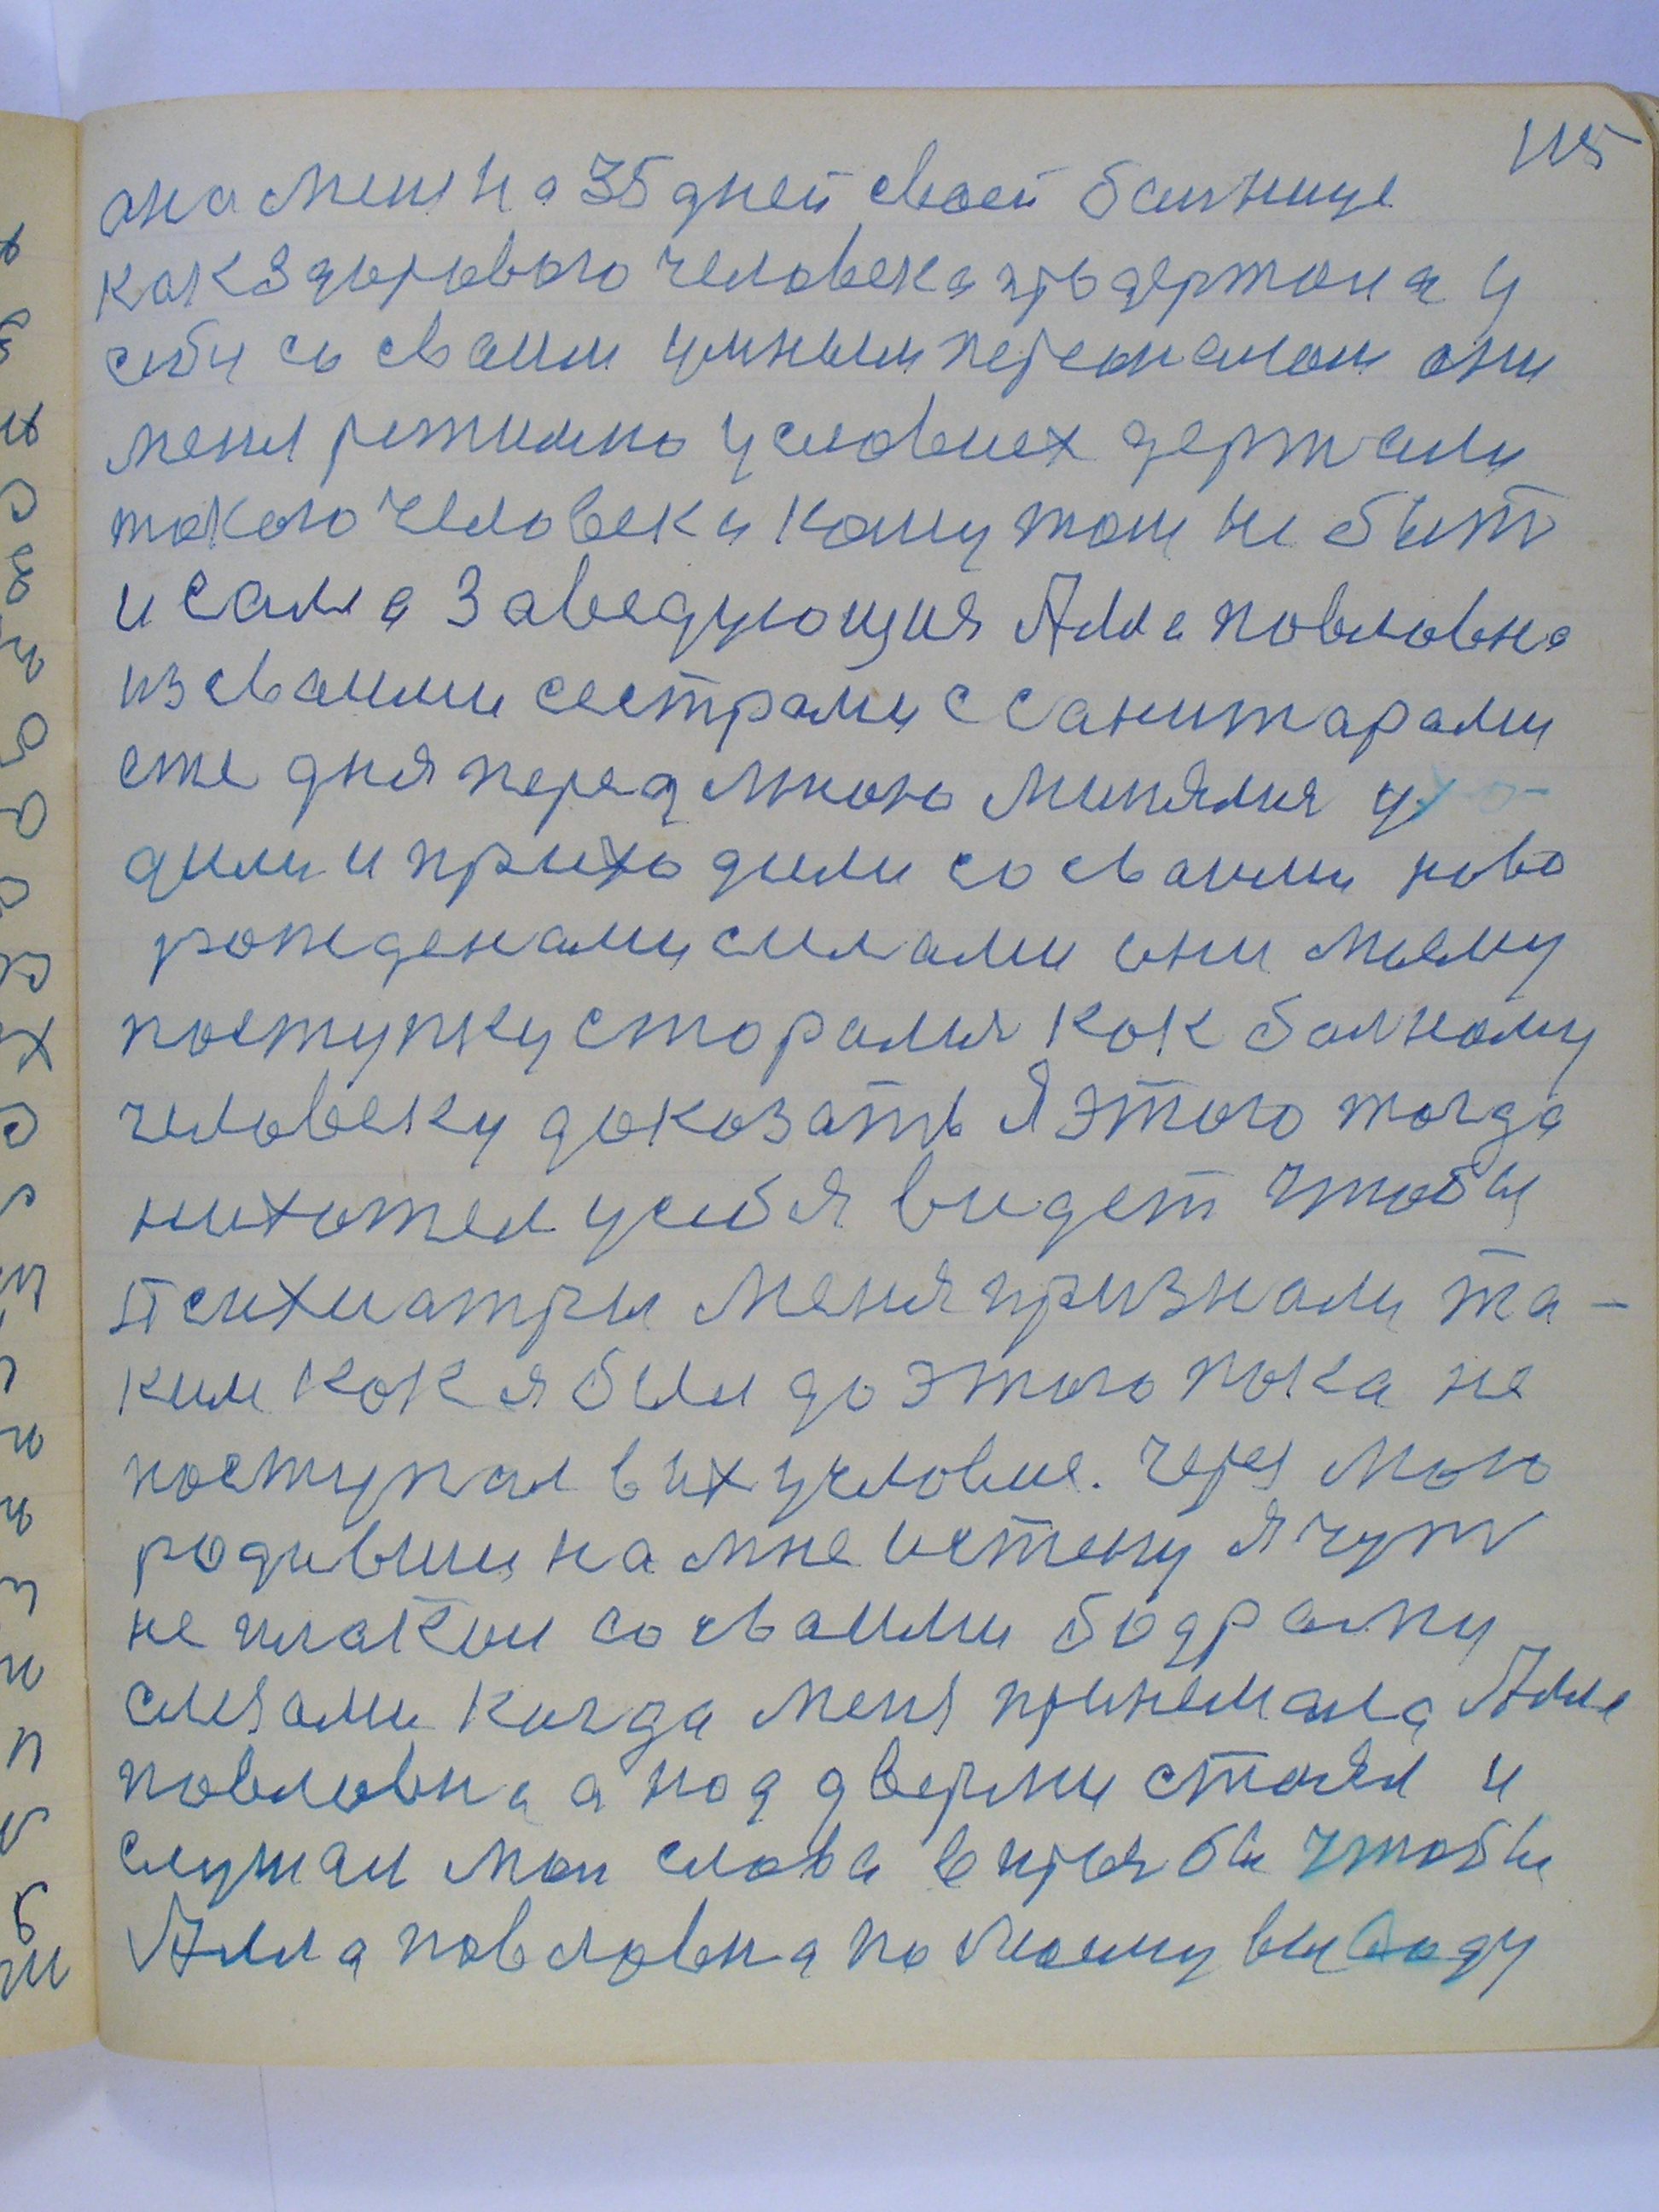 115
она меня на 35 дней своей болнице
как здорового человека продержала у
себя со своим умным персоналом они
меня режимно условиех держали
такого человека кому том не быть
и сама Заведующия Алла повловна
из своими сестрами с санитарами
сже дня перед мною минялися ухо-
дили и приходили со своими ново
рожденами силами они моему
поступку старалися как болному
человеку доказать Я этого тогда
нихотел у себя видет чтобы
Психиатры меня признали та-
ким как я был до этого пока не
поступал в их условие. Через мою
родившию на мне истену я чуть
не плакал со своими бодрами
слезами когда меня принемала Алла
повловна а под дверми стоял и
слушал мои слова
чтобы
Алла повловна по моему выводу